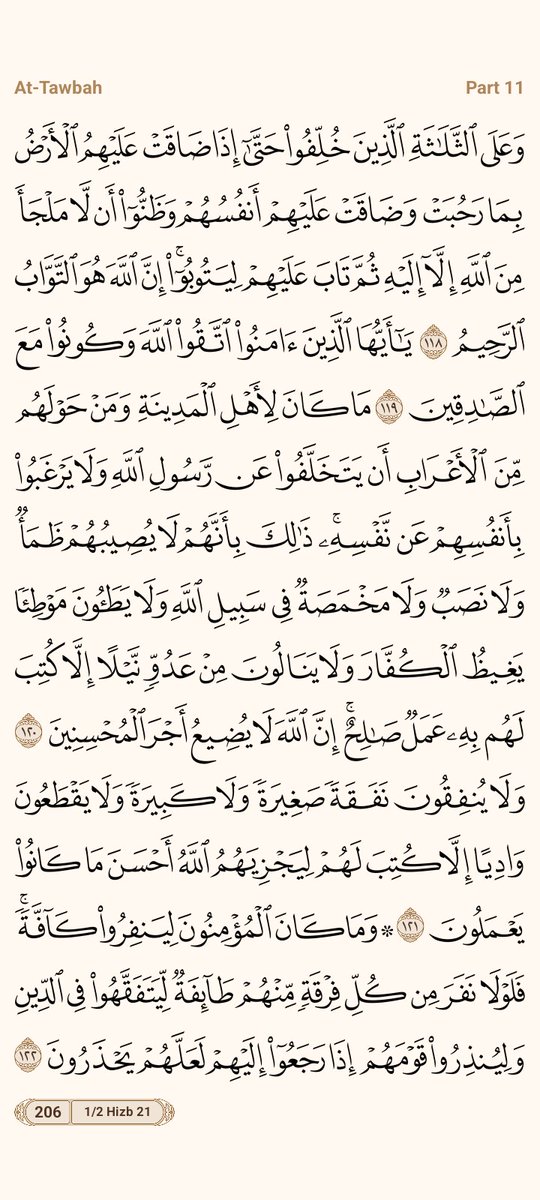 At-Tawbah
Part 11
وَعَلَى ٱلثَّلَٰثَةِ ٱلَّذِينَ خُلِّفُوا۟ حَتَّىٰٓ إِذَا ضَاقَتْ عَلَيْهِمُ ٱلْأَرْضُ
بِمَا رَحُبَتْ وَضَاقَتْ عَلَيْهِمْ أَنفُسُهُمْ وَظَنُّوٓا۟ أَن لَّا مَلْجَأَ
مِنَ ٱللَّهِ إِلَّآ إِلَيْهِ ثُمَّ تَابَ عَلَيْهِمْ لِيَتُوبُوٓا۟ ۚ إِنَّ ٱللَّهَ هُوَ ٱلتَّوَّابُ
ٱلرَّحِيمُ ١١٨ يَٰٓأَيُّهَا ٱلَّذِينَ ءَامَنُوا۟ ٱتَّقُوا۟ ٱللَّهَ وَكُونُوا۟ مَعَ
ٱلصَّٰدِقِينَ ١١٩ مَا كَانَ لِأَهْلِ ٱلْمَدِينَةِ وَمَنْ حَوْلَهُم
مِّنَ ٱلْأَعْرَابِ أَن يَتَخَلَّفُوا۟ عَن رَّسُولِ ٱللَّهِ وَلَا يَرْغَبُوا۟
بِأَنفُسِهِمْ عَن نَّفْسِهِۦ ۚ ذَٰلِكَ بِأَنَّهُمْ لَا يُصِيبُهُمْ ظَمَأٌ
وَلَا نَصَبٌ وَلَا مَخْمَصَةٌ فِى سَبِيلِ ٱللَّهِ وَلَا يَطَـُٔونَ مَوْطِئًا
يَغِيظُ ٱلْكُفَّارَ وَلَا يَنَالُونَ مِنْ عَدُوٍّ نَّيْلًا إِلَّا كُتِبَ
لَهُم بِهِۦ عَمَلٌ صَٰلِحٌ ۚ إِنَّ ٱللَّهَ لَا يُضِيعُ أَجْرَ ٱلْمُحْسِنِينَ ١٢٠
وَلَا يُنفِقُونَ نَفَقَةً صَغِيرَةً وَلَا كَبِيرَةً وَلَا يَقْطَعُونَ
وَادِيًا إِلَّا كُتِبَ لَهُمْ لِيَجْزِيَهُمُ ٱللَّهُ أَحْسَنَ مَا كَانُوا۟
يَعْمَلُونَ ١٢١ ۞ وَمَا كَانَ ٱلْمُؤْمِنُونَ لِيَنفِرُوا۟ كَآفَّةً ۚ
فَلَوْلَا نَفَرَ مِن كُلِّ فِرْقَةٍ مِّنْهُمْ طَآئِفَةٌ لِّيَتَفَقَّهُوا۟ فِى ٱلدِّينِ
وَلِيُنذِرُوا۟ قَوْمَهُمْ إِذَا رَجَعُوٓا۟ إِلَيْهِمْ لَعَلَّهُمْ يَحْذَرُونَ ١٢٢
206 1/2 Hizb 21